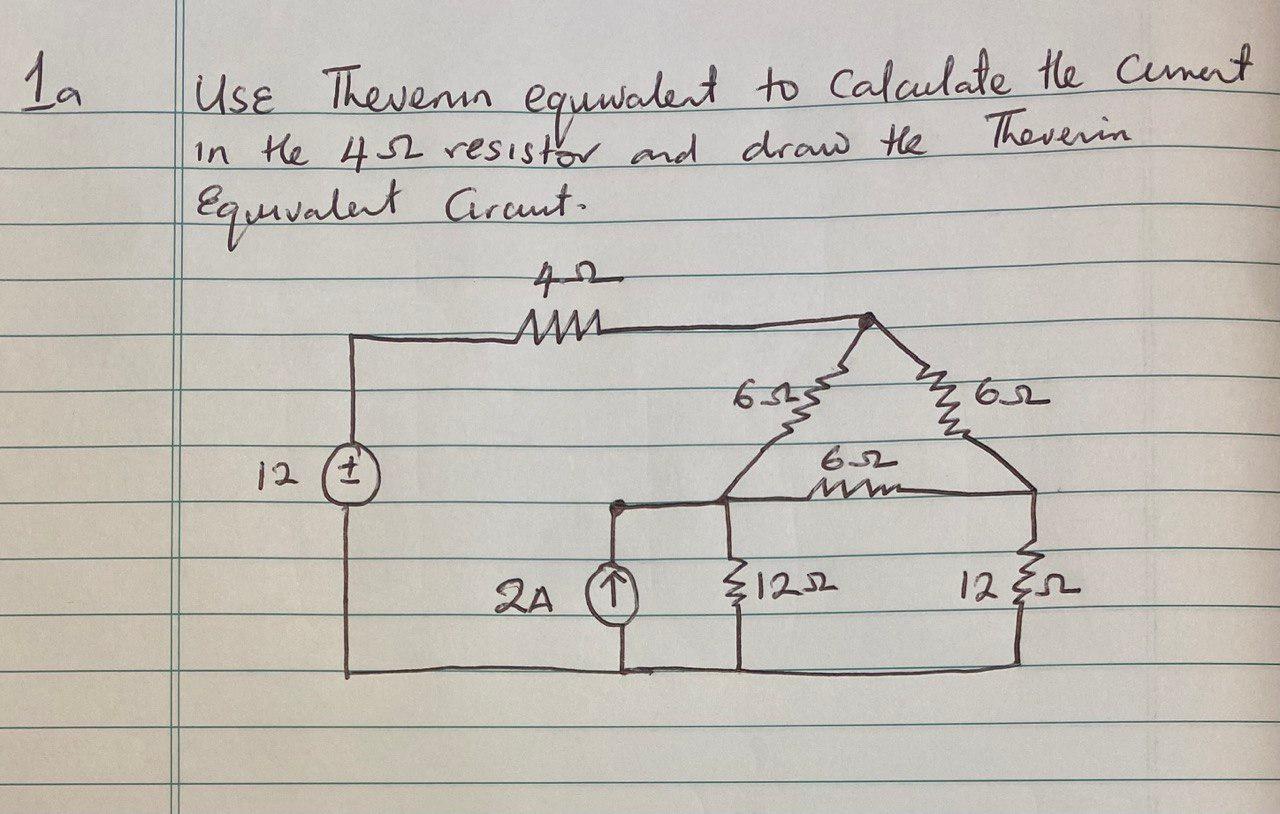 1a
Use Thevenin equivalent to Calculate the current
in the 4Ω resistor and draw the Thevenin
Equivalent Circuit.
4Ω
6Ω
6Ω
6Ω
12
±
2A
12Ω
12 Ω